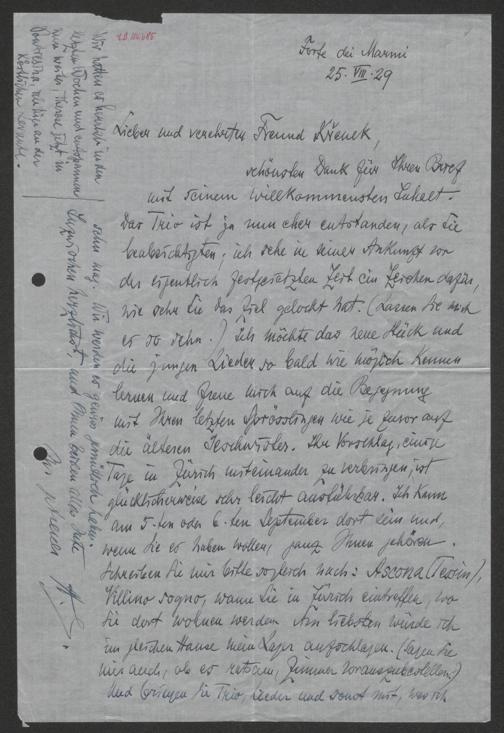 Forte dei Marmi
25. VIII. 29
Lieber und verehrter Freund Křenek,
schönsten Dank für Ihren Brief
mit seinem willkommensten Inhalt.
Das Trio ist ja nun eher entstanden, als Sie
beabsichtigten; ich sehe in seiner Ankunft vor
der eigentlich festgesetzten Zeit ein Zeichen dafür,
wie sehr Sie das Ziel gelockt hat. (Lassen Sie mich
es so sehn!) Ich möchte das neue Stück und
die jungen Lieder so bald wie möglich kennen
lernen und freue mich auf die Begegnung
mit Ihren letzten Sprösslingen wie je zuvor auf
die älteren Geschwister. Ihr Vorschlag, einige
Tage in Zürich miteinander zu verbringen, ist
glücklicherweise sehr leicht ausführbar. Ich kann
am 5-ten oder 6-ten September dort sein und,
wenn Sie es haben wollen, ganz Ihnen gehören.
Schreiben Sie mir bitte sogleich nach: Ascona (Tessin),
Villino sogno, wann Sie in Zürich eintreffen, wo
Sie dort wohnen werden. Am liebsten würde ich
im gleichen Hause mein Lager aufschlagen. (Sagen Sie
mir auch, ob es ratsam, Zimmer vorauszubestellen.)
Und bringen Sie Trio, Lieder und sonst mit, was ich
sehn mag. Wir werden es gewiss gemütlich haben.
Inzwischen herzlichst, und Ihnen beiden alles Gute
Ihr
Wir hatten es herrlich in den
letzten Wochen und entspannen
nun weiter,